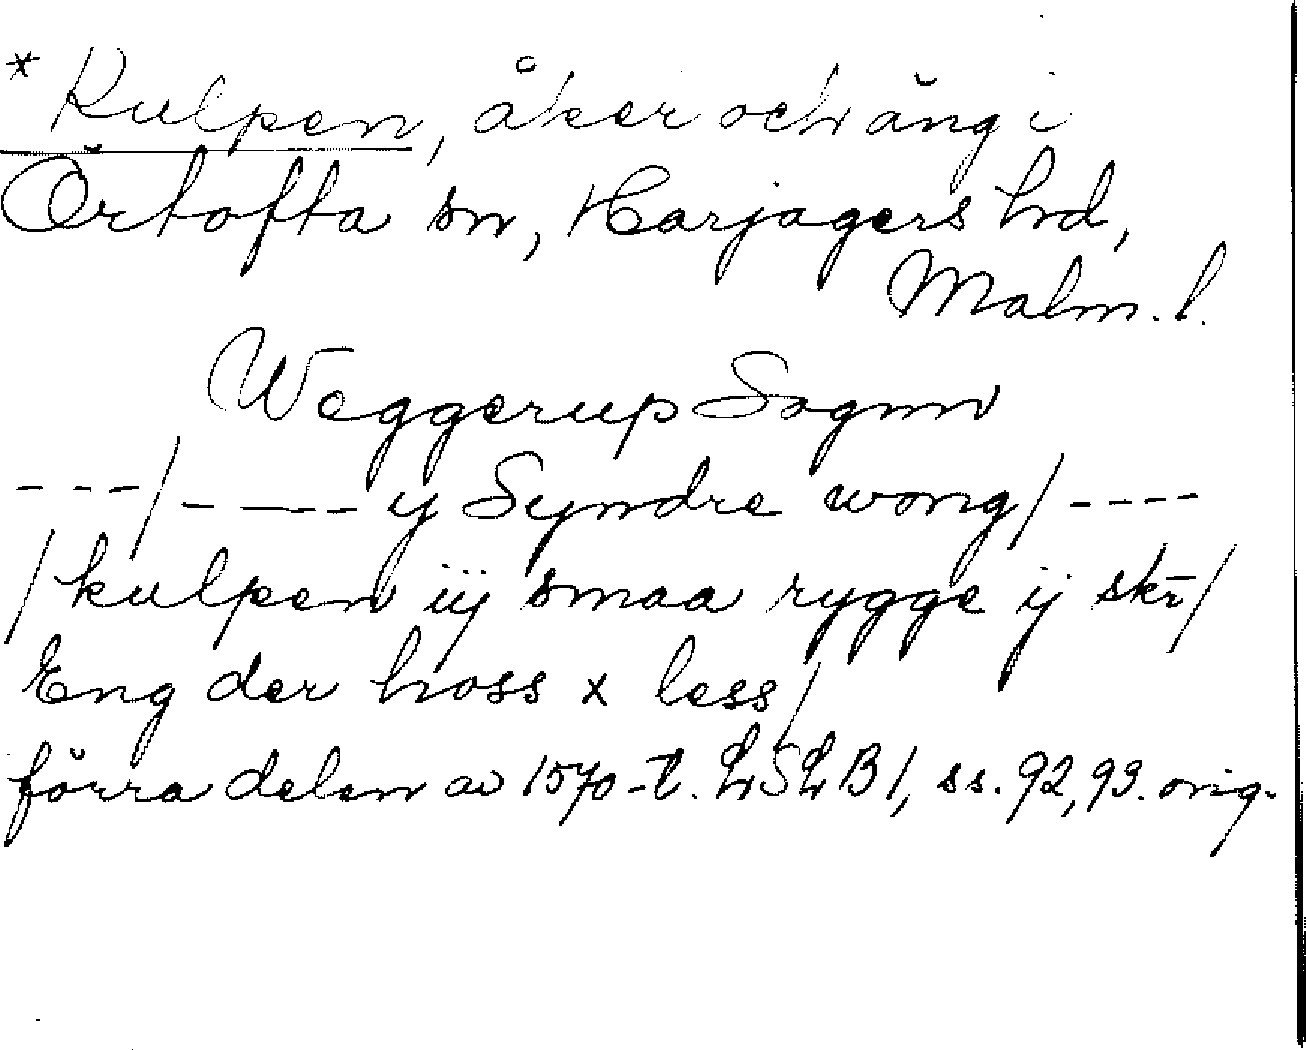 * Kulpen, åker och äng i
Örtofta sn, Harjagers hd,
Malm. l.
Weggerup Sognn
---/----- y Syndre wong/----
/kulpen iij smaa rygge ij skr/
Eng der hoss x less/
förra delen av 1570-t. LSLB 1, ss. 92, 93. orig.